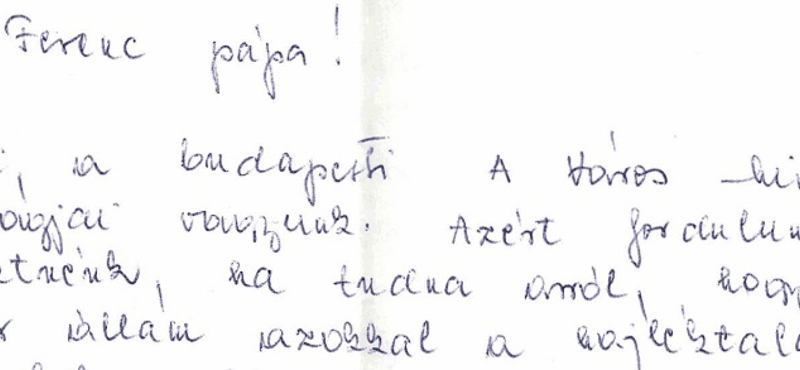 Ferenc pápa!
, a budapesti A Város
tagjai vagyunk. Azért fordulun
etnénk, ha tudna arról, hogy
állam azokkal a hajléktala